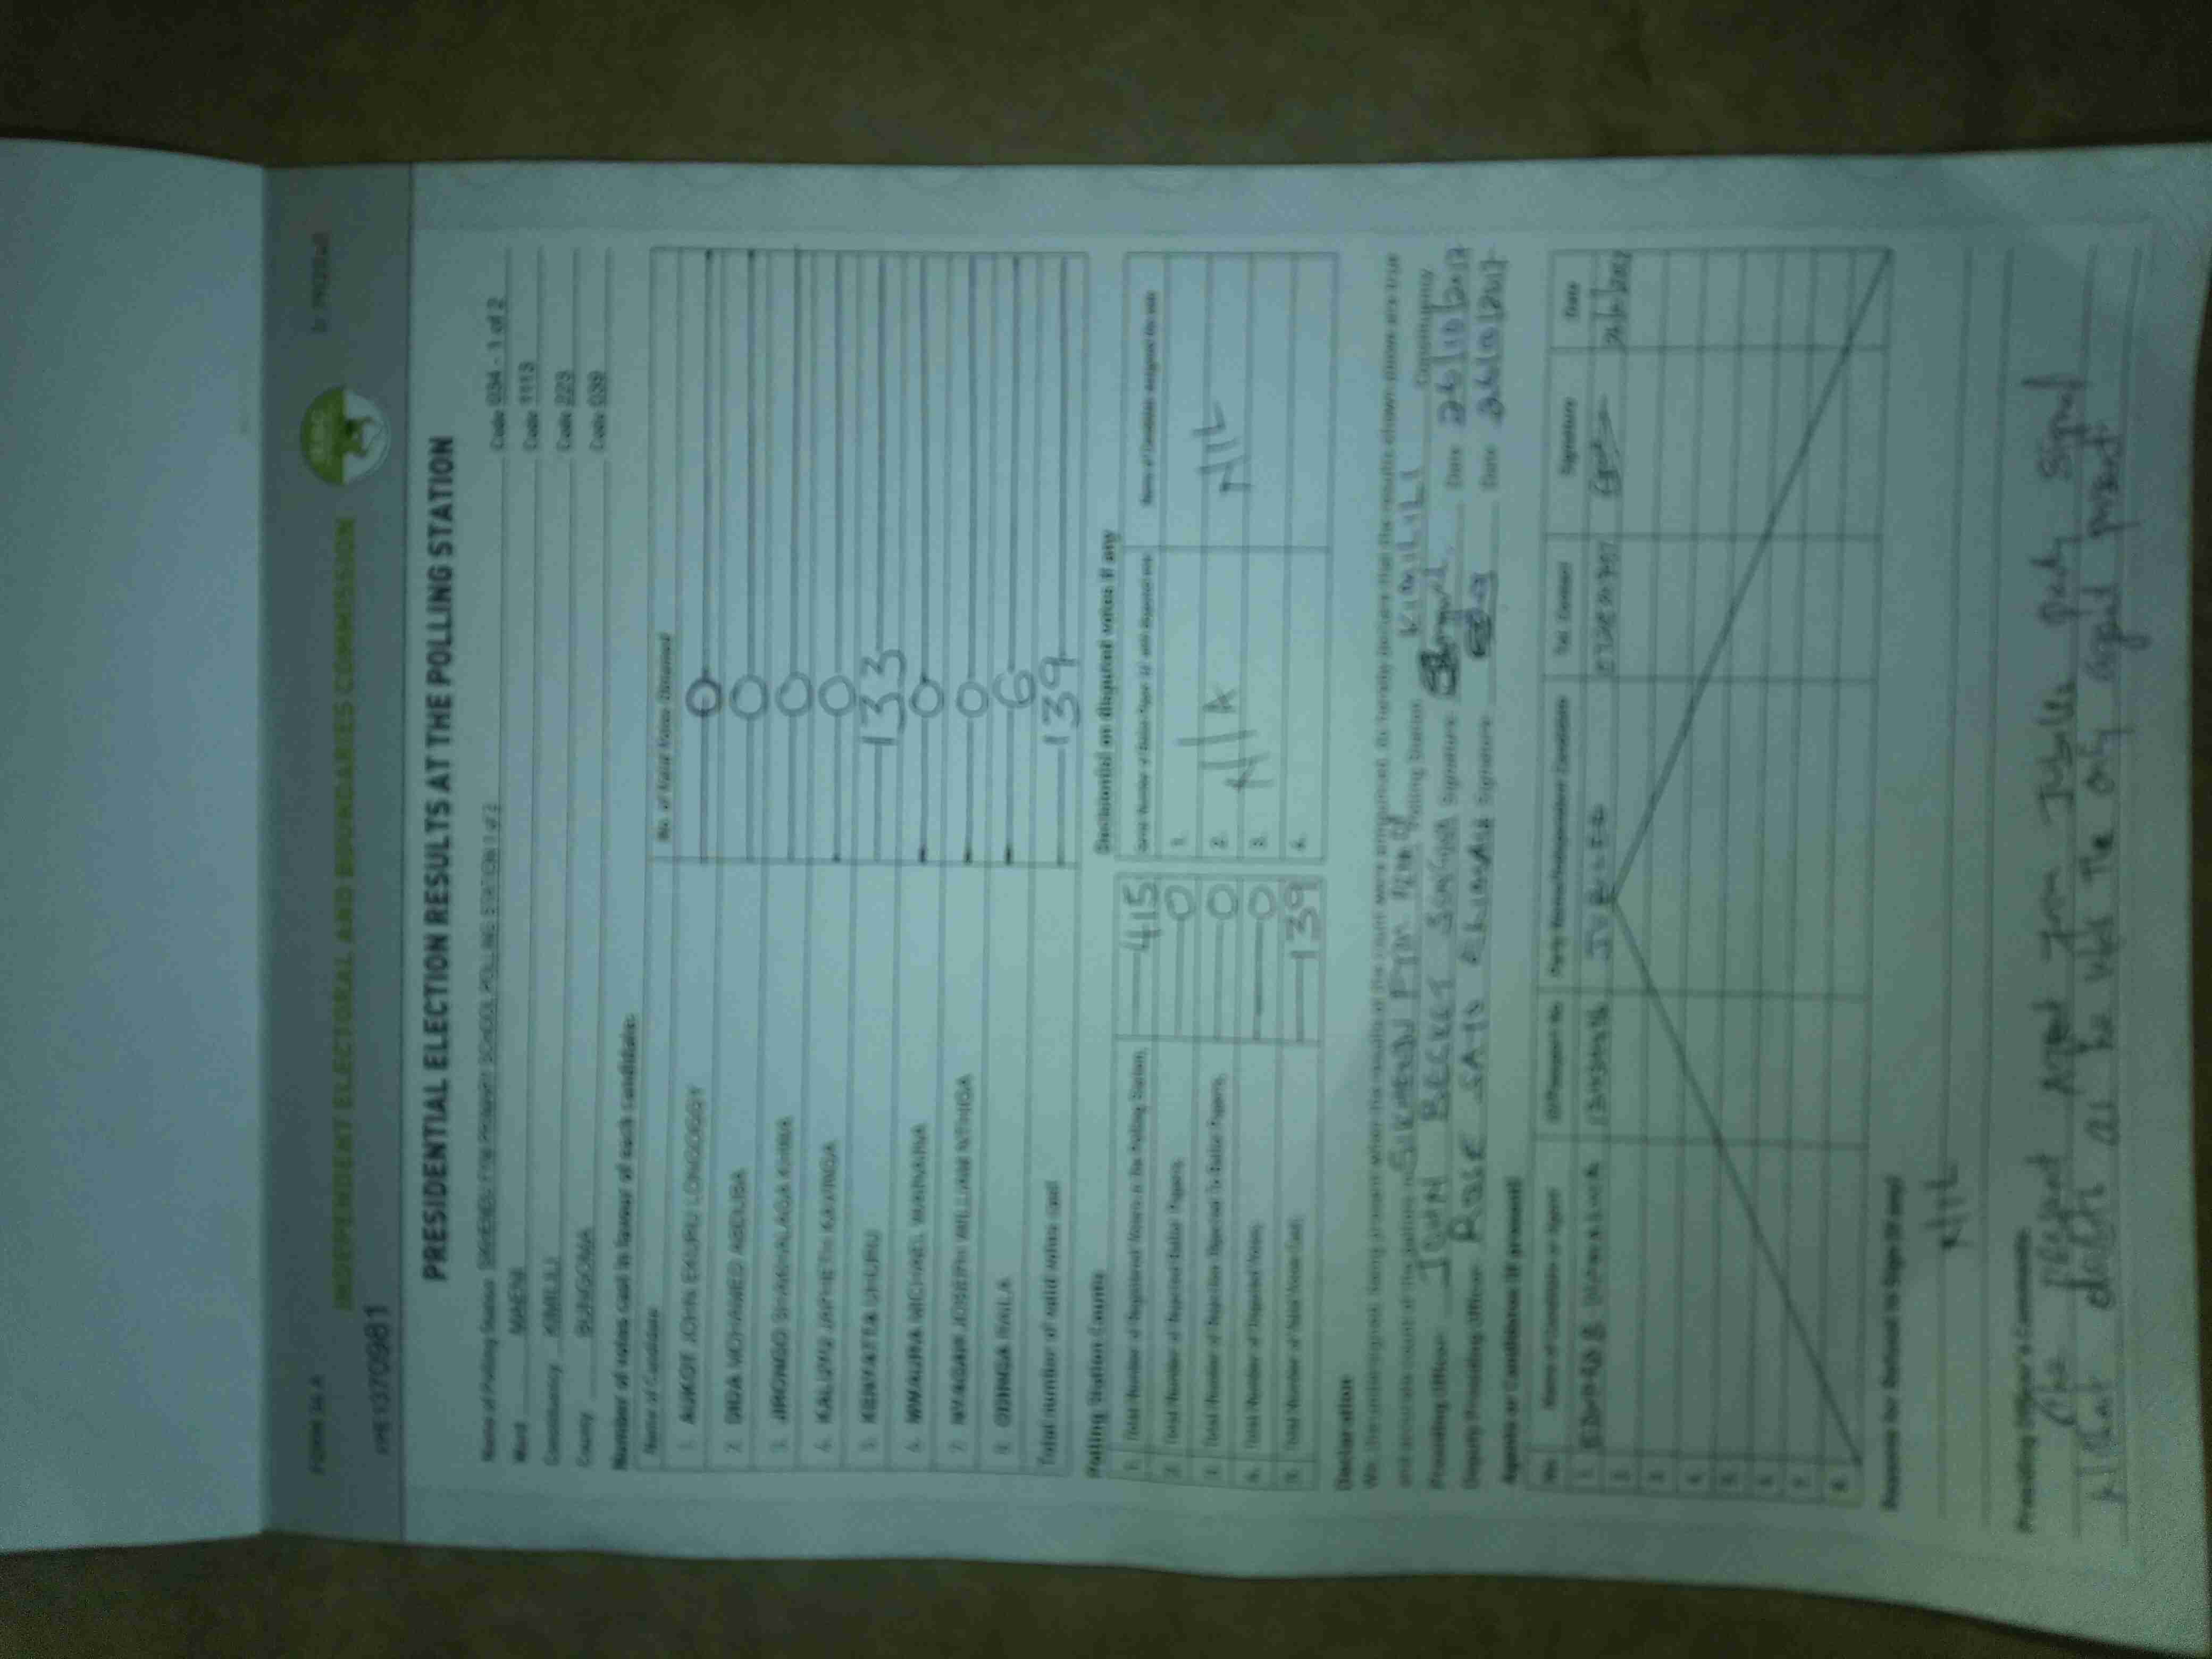 FORM 34 A
INDEPENDENT ELECTORAL AND BOUNDARIES COMMISSION
PRESIDENTIAL ELECTION RESULTS AT THE POLLING STATION
Name of Polling Station PRIMARY SCHOOL POLLING STATION 1 of 2 Code 034 - 1 of 2
Ward MAENI Code 1113
Constituency KIMILILI Code 223
County BUNGOMA Code 039
Number of votes cast in favour of each candidate:
Name of Candidate No. of Valid Votes Obtained
1. AUKOT JOHN EKURU LONGOGGY 0
2. DIDA MOHAMED ABDUBA 0
3. JIRONGO SHAKHALAGA KHWA 0
4. KALUYU JAPHETH KAVINGA 0
5. KENYATTA UHURU 133
6. MWAURA MICHAEL WAINAINA 0
7. NYAGAH JOSEPH WILLIAM NTHIGA 0
8. ODINGA RAILA 6
Total number of valid votes cast 139
Polling Station Counts
1. Total Number of Registered Voters in the Polling Station 415
2. Total Number of Rejected Ballot Papers 0
3. Total Number of Rejection Objected To Ballot Papers 0
4. Total Number of Disputed Votes 0
5. Total Number of Valid Votes Cast 139
Decision(s) on disputed votes if any
1.
2. N/A NIL
3.
4.
Declaration
We, the undersigned, being present when the results of the count were announced, do hereby declare that the results shown above are true
and accurate count of the ballots in Polling Station KIMILILI Constituency
Presiding Officer JOHN BECKET Signature Date 26/10/2017
Deputy Presiding Officer ROSE Signature Date 26/10/2017
Agents or Candidates (if present)
No. Name of Candidate or Agent ID/Passport No Party Name/Independent Candidate Tel. Contact Signature Date
1. JUBILEE
2.
3.
4.
5.
6.
7.
8.
Reasons for Refusal to Sign (if any)
NIL
Presiding Officer's Comments
The Agent from Jubilee party signed
without as he was the only agent present